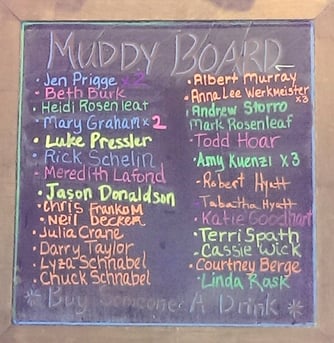 MUDDY BOARD
Jen Prigge x2
Beth Burk
Heidi Rosenleaf
Mary Graham x2
Luke Pressler
Rick Schelin
Meredith Lafond
Jason Donaldson
Chris Frankom
Neil Decker
Julia Crane
Darry Taylor
Lyza Schnabel
Chuck Schnabel
Albert Murray
Anna Lee Werkmeister
x3
Andrew Storro
Mark Rosenleaf
Todd Hoar
Amy Kuenzi x3
Robert Hyatt
Tabatha Hyatt
Katie Goodhart
Terri Spath
Cassie Wick
Courtney Berge
Linda Rask
Buy Someone A Drink